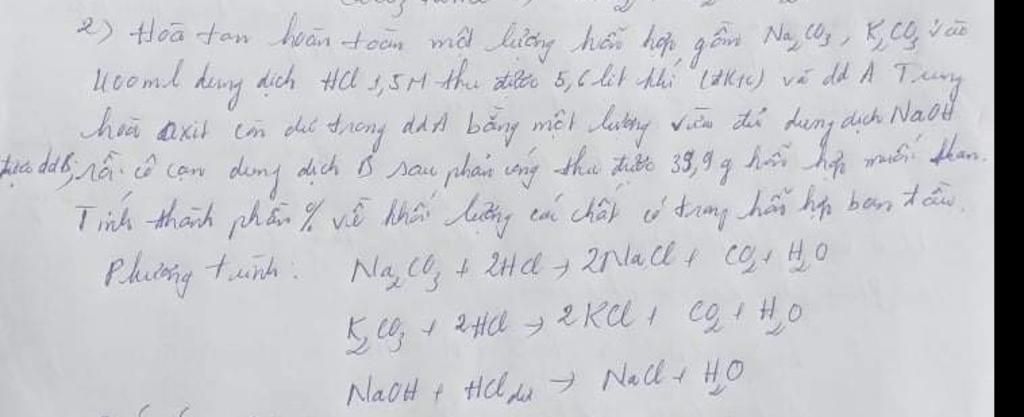 2) Hoà tan hoàn toàn một lượng hỗn hợp gồm Na₂CO₃, K₂CO₃ vào
400ml dung dịch HCl 1,5M thu được 5,6 lit khí (đktc) và dd A Trung
hoà axit còn dư trong ddA bằng một lượng vừa đủ dung dịch NaOH
được ddB, rồi cô cạn dung dịch B sau phản ứng thu được 39,9g hỗn hợp muối khan.
Tính thành phần % về khối lượng các chất có trong hỗn hợp ban đầu.
Phương trình: Na₂CO₃ + 2HCl → 2NaCl + CO₂ + H₂O
K₂CO₃ + 2HCl → 2KCl + CO₂ + H₂O
NaOH + HCl dư → NaCl + H₂O